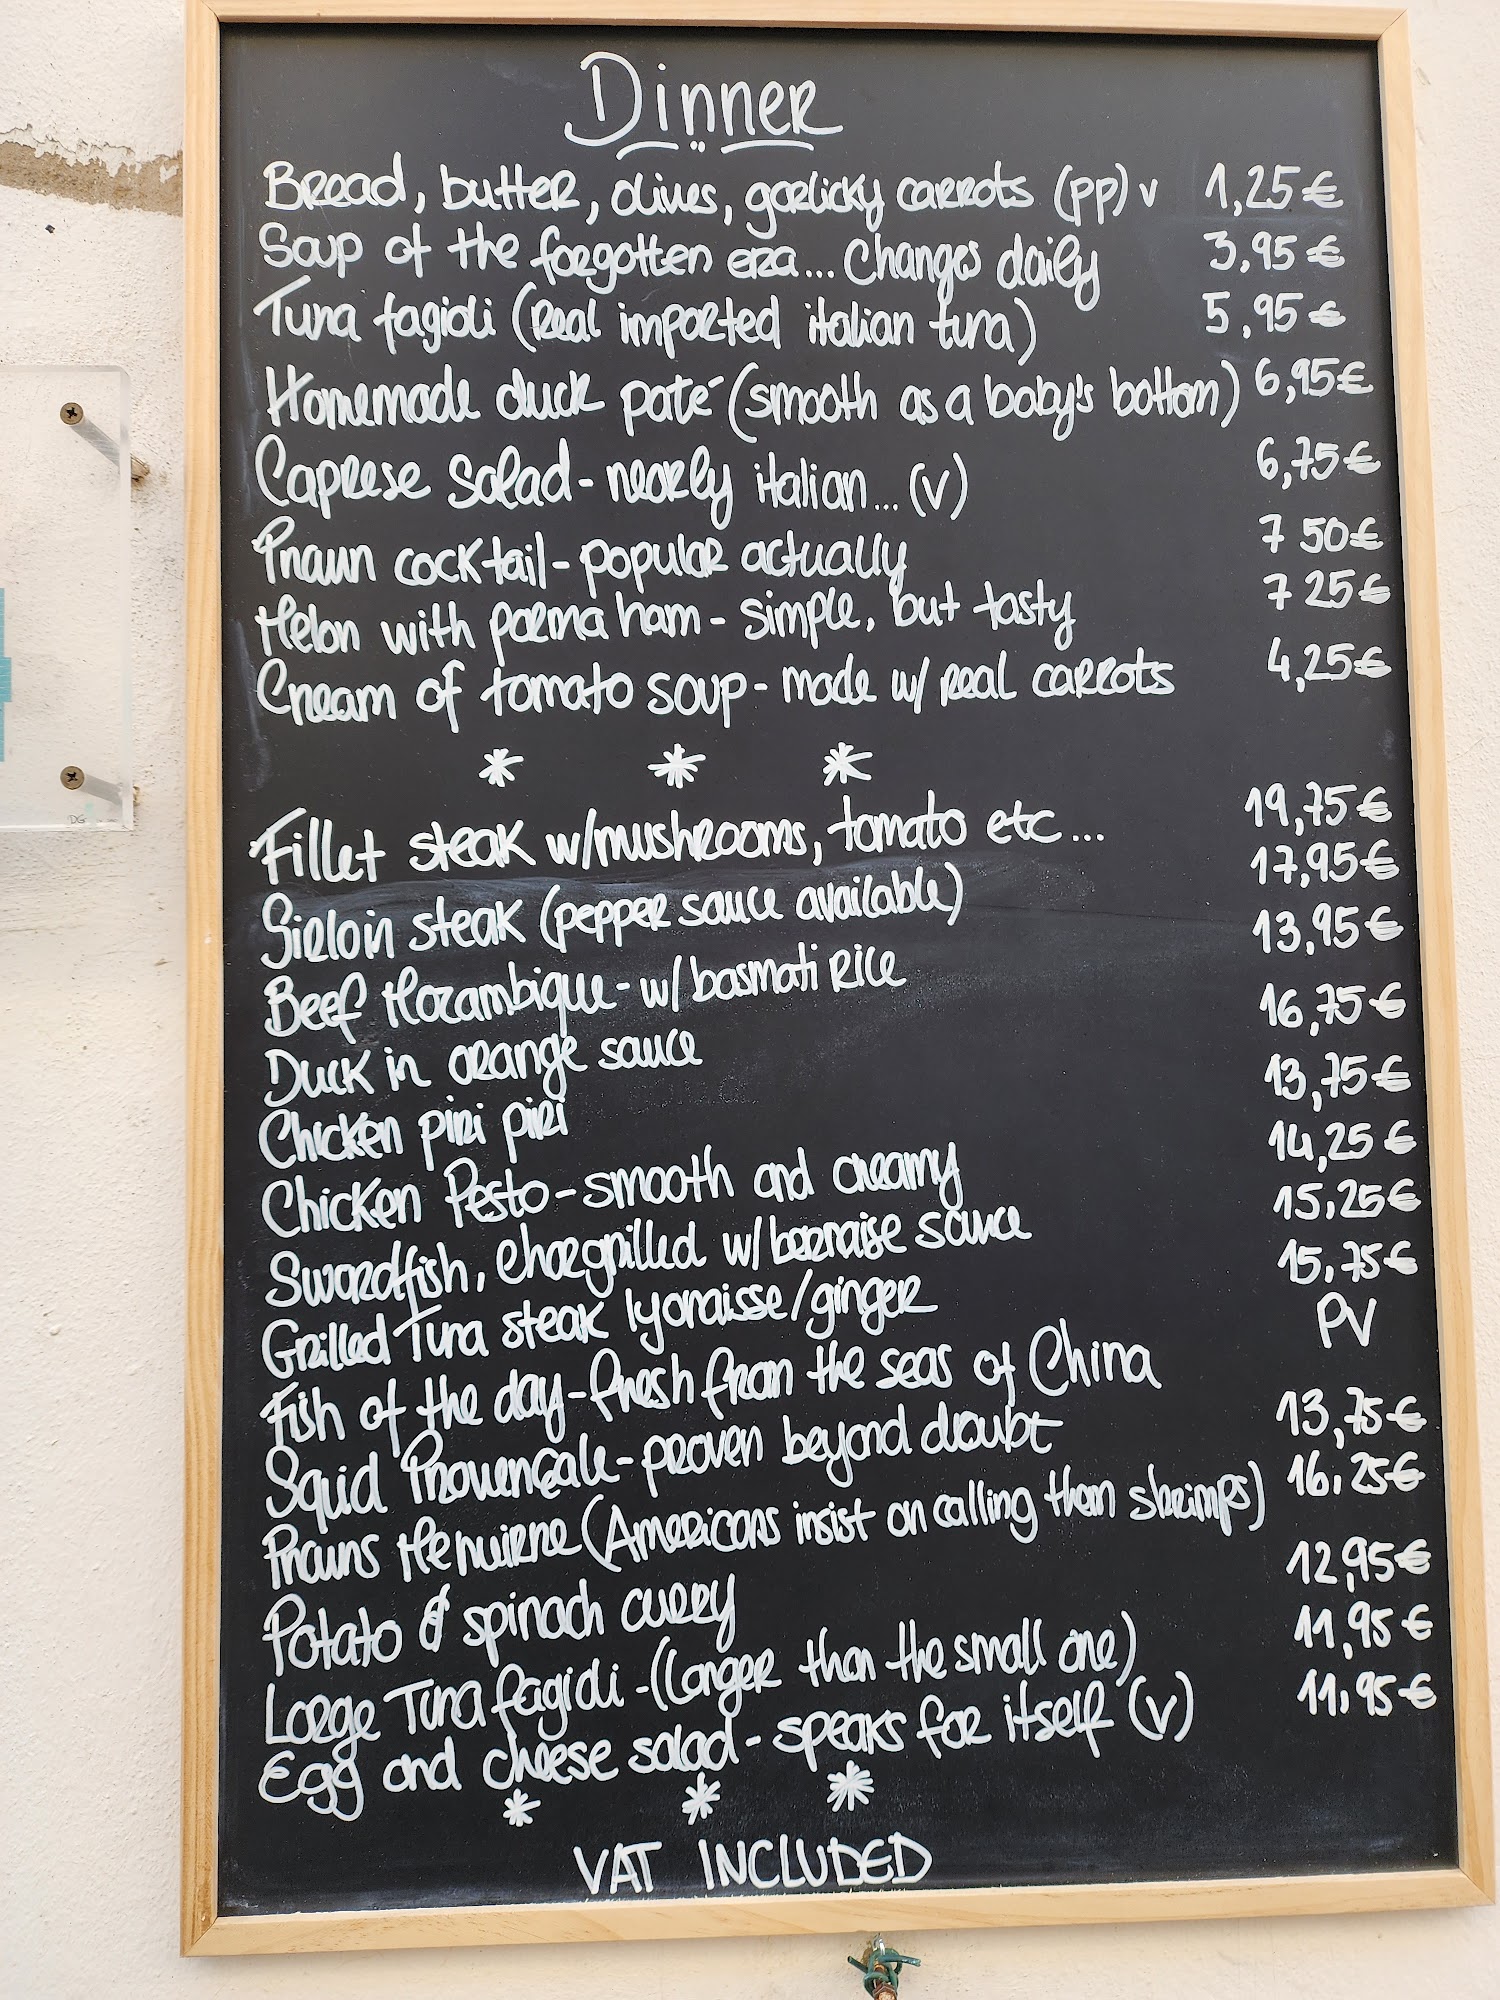 Dinner
Bread, butter, olives, garlicky carrots (pp) v 1,25€
Soup of the forgotten era... Changes daily 3,95€
Tuna fagioli (Real imported italian tuna) 5,95€
Homemade duck paté (smooth as a baby's bottom) 6,95€
Caprese salad - nearly italian... (v) 6,75€
Prawn cocktail - popular actually 7 50€
Melon with parma ham - simple, but tasty 7 25€
Cream of tomato soup - made w/ real carrots 4,25€
* * *
Fillet steak w/mushrooms, tomato etc... 19,75€
Sirloin steak (pepper sauce available) 17,95€
Beef Mozambique - w/ basmati rice 13,95€
Duck in orange sauce 16,75€
Chicken piri piri 13,75€
Chicken Pesto - smooth and creamy 14,25€
Swordfish, chargrilled w/ bernaise sauce 15,25€
Grilled Tuna steak lyonaisse/ginger 15,75€
Fish of the day - fresh from the seas of China PV
Squid Provençale - proven beyond doubt 13,75€
Prawns Menuirne (Americans insist on calling them shrimps) 16,25€
Potato & spinach curry 12,95€
Large Tuna fagioli - (Larger than the small one) 11,95€
Egg and cheese salad - speaks for itself (v) 11,95€
* * *
VAT INCLUDED
DG